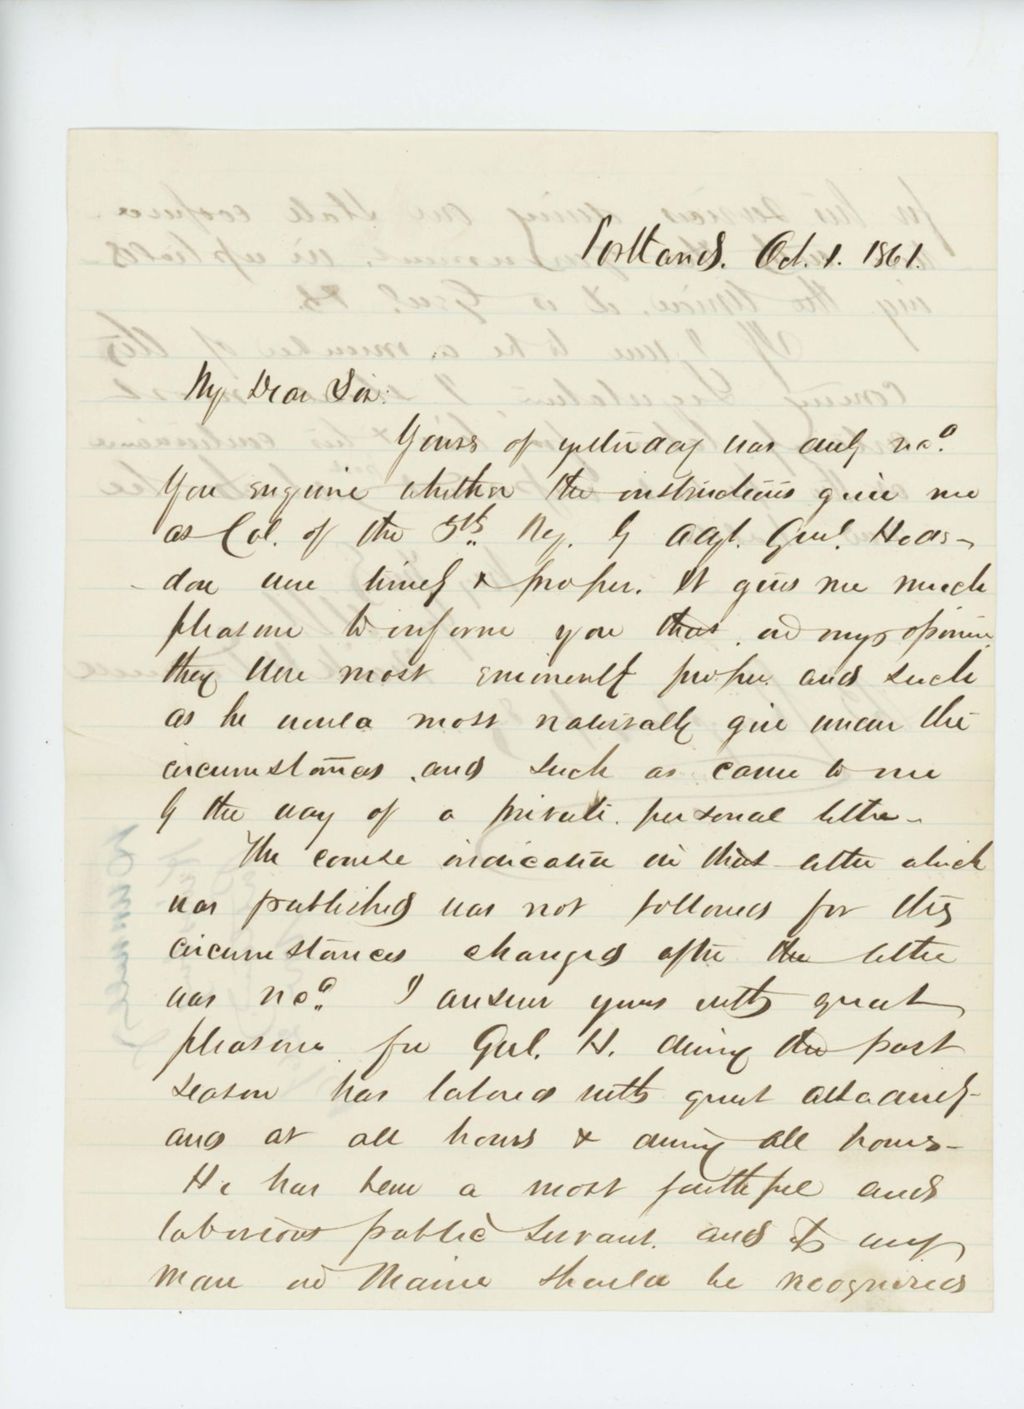 Portland. Oct. 1. 1861.
My Dear Sir:
Yours of yesterday was duly recd.
You enquire whether the instructions given me
as Col. of the 5th. Reg. by Adjt. Genl. Hods-
don were timely & proper. It gives me much
pleasure to inform you that in my opinion
they were most eminently proper and such
as he would most naturally give under the
circumstances and such as came to me
by the way of a private personal letter-
The course indicated in that letter which
was published was not followed for the
circumstances changed after the letter
was recd. I answer yours with great
pleasure for Genl. H. during the past
season has labored with great
and at all hours & during all hours-
He has been a most faithful and
laborious public servant. and if any
man in Maine should be recognized